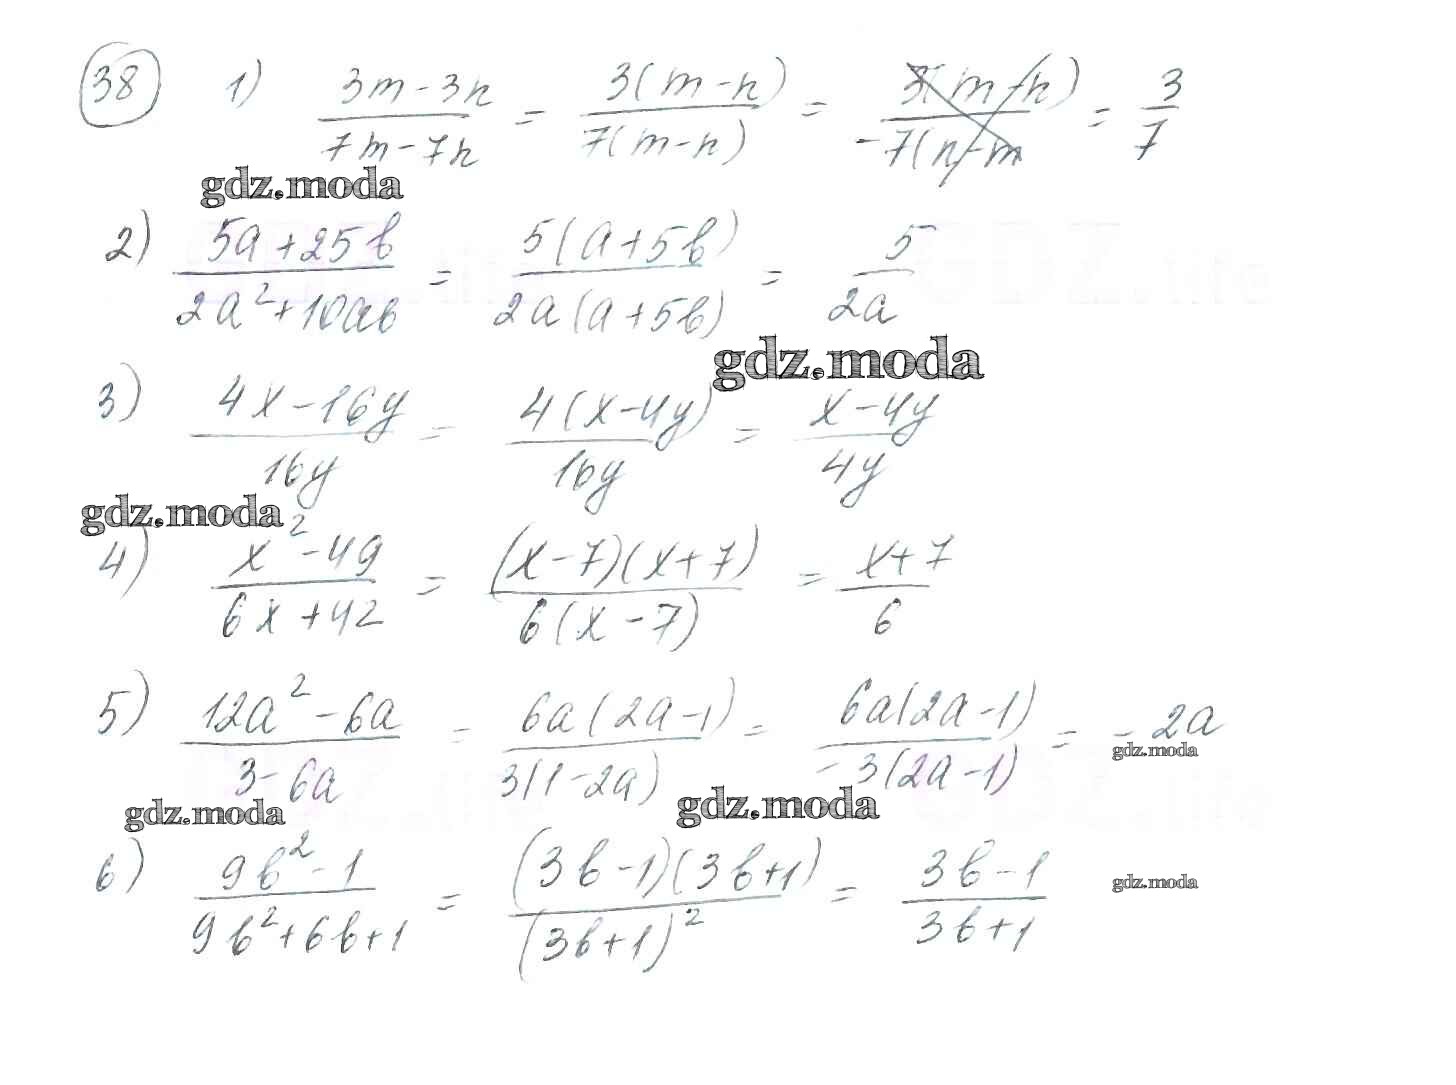 38 1) (3m-3n)/(7m-7n) = 3(m-n)/7(m-n) = 3(m-n)/-7(n-m = 3/7
gdz.moda
2) (5a+25b)/(2a²+10ab) = 5(a+5b)/2a(a+5b) = 5/2a
gdz.moda
3) (4x-16y)/16y = 4(x-4y)/16y = (x-4y)/4y
gdz.moda
4) (x²-49)/(6x+42) = (x-7)(x+7)/6(x-7) = (x+7)/6
5) (12a²-6a)/(3-6a) = 6a(2a-1)/3(1-2a) = 6a(2a-1)/-3(2a-1) = -2a
gdz.moda
gdz.moda
gdz.moda
6) (9b²-1)/(9b²+6b+1) = (3b-1)(3b+1)/(3b+1)² = (3b-1)/(3b+1)
gdz.moda